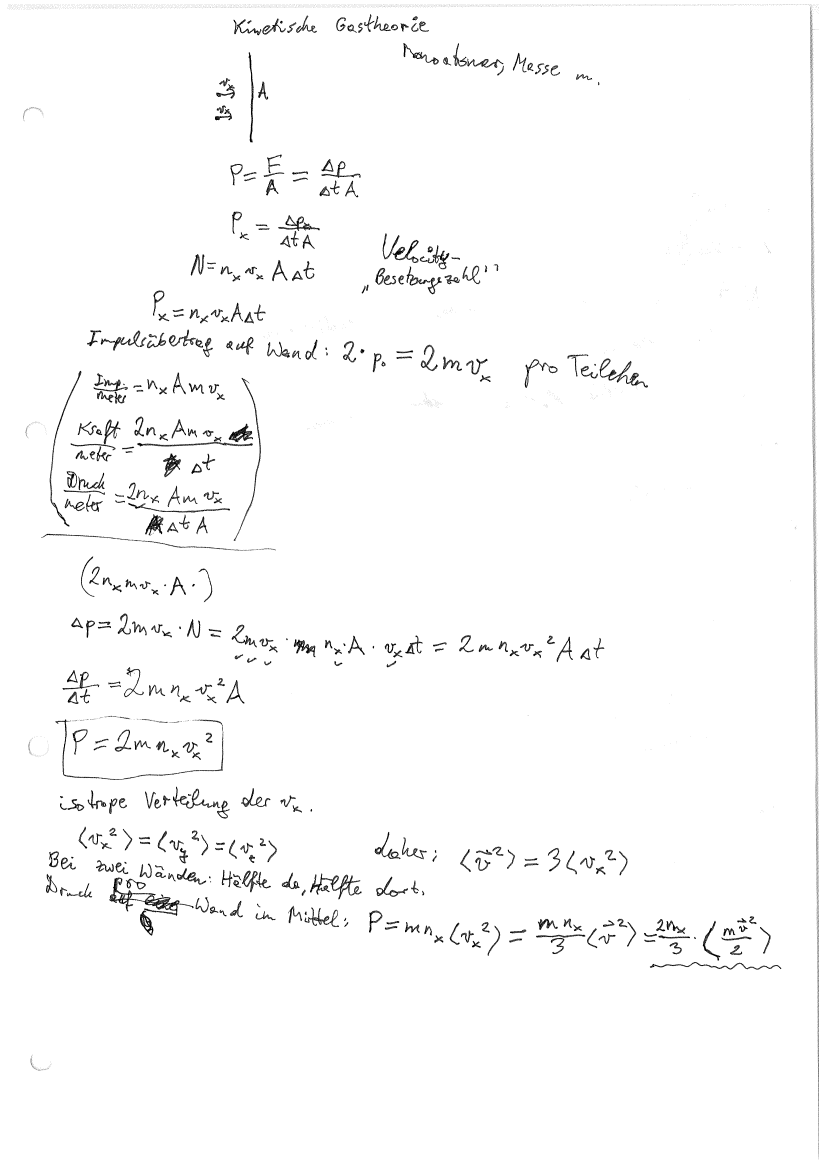 Kinetische Gastheorie
Monoatomar, Masse m.
v_x
v_x
A
P = F/A = Δp/(Δt A)
P_x = Δp_x/(Δt A)
N = n_x v_x A Δt
Velocity-
„Besetzungszahl"
P_x = n_x v_x A Δt
Impulsübertrag auf Wand: 2·p. = 2 m v_x pro Teilchen
Imp./meter = n_x A m v_x
Kraft/meter = 2 n_x A m v_x / Δt
Druck/meter = 2 n_x A m v_x / (Δt A)
(2 n_x m v_x · A ·)
Δp = 2 m v_x · N = 2 m v_x · n_x · A · v_x Δt = 2 m n_x v_x² A Δt
Δp/Δt = 2 m n_x v_x² A
P = 2 m n_x v_x²
isotrope Verteilung der v_x.
⟨v_x²⟩ = ⟨v_y²⟩ = ⟨v_z²⟩ daher: ⟨v⃗²⟩ = 3⟨v_x²⟩
Bei zwei Wänden: Hälfte da, Hälfte dort.
Druck pro Wand im Mittel: P = m n_x ⟨v_x²⟩ = m n_x/3 ⟨v⃗²⟩ = 2n_x/3 · ⟨m v⃗²/2⟩